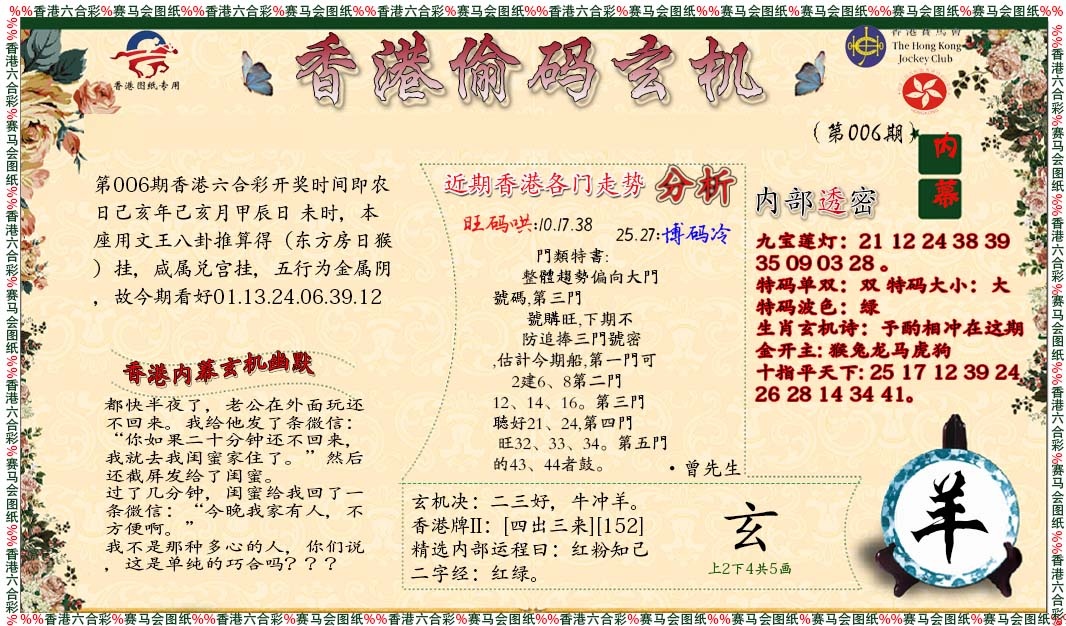 %%香港六合彩%赛马会图纸%%香港六合彩%赛马会图纸%%香港六合彩%赛马会图纸%%香港六合彩%赛马会图纸%%香港六合彩%赛马会图纸%%香港六合彩%赛马会图纸
香港图纸专用
香港偷码玄机
香港賽馬會
The Hong Kong
Jockey Club
(第006期)
内
幕
第006期香港六合彩开奖时间即农
日己亥年己亥月甲辰日 未时,本
座用文王八卦推算得(东方房日猴
)挂,咸属兑宫挂,五行为金属阴
,故今期看好01.13.24.06.39.12
香港内幕玄机幽默
都快半夜了,老公在外面玩还
不回来。我给他发了条微信:
“你如果二十分钟还不回来,
我就去我闺蜜家住了。”然后
还截屏发给了闺蜜。
过了几分钟,闺蜜给我回了一
条微信:“今晚我家有人,不
方便啊。”
我不是那种多心的人,你们说
,这是单纯的巧合吗???
近期香港各门走势 分析
旺码哄:10.17.38
25.27:博码冷
門類特書:
整體趨勢偏向大門
號碼,第三門
號購旺,下期不
防追捧三門號密
,估計今期船,第一門可
2建6、8第二門
12、14、16。第三門
聽好21、24,第四門
旺32、33、34。第五門
的43、44者鼓。
·曾先生
内部透密
九宝莲灯:21 12 24 38 39
35 09 03 28 。
特码单双: 双 特码大小: 大
特码波色:绿
生肖玄机诗:予酌相冲在这期
金开主: 猴兔龙马虎狗
十指平天下: 25 17 12 39 24
26 28 14 34 41。
玄机决:二三好,牛冲羊。
香港牌II:[四出三来][152]
精选内部运程曰:红粉知己
二字经:红绿。
玄
上2下4共5画
羊
%%香港六合彩%赛马会图纸%%香港六合彩%赛马会图纸%%香港六合彩%赛马会图纸%%香港六合彩%赛马会图纸
%%香港六合彩%赛马会图纸%%香港六合彩%赛马会图纸%%香港六合彩%赛马会图纸%%香港六合彩
%%香港六合彩%赛马会图纸%%香港六合彩%赛马会图纸%%香港六合彩%赛马会图纸%%香港六合彩%赛马会图纸%%香港六合彩%赛马会图纸%%香港六合彩%赛马会图纸